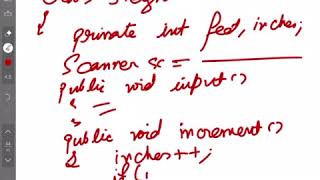 {
private int feet, inches;
Scanner sc =
public void input()
{ =
}
public void increment()
{ inches++;
if (